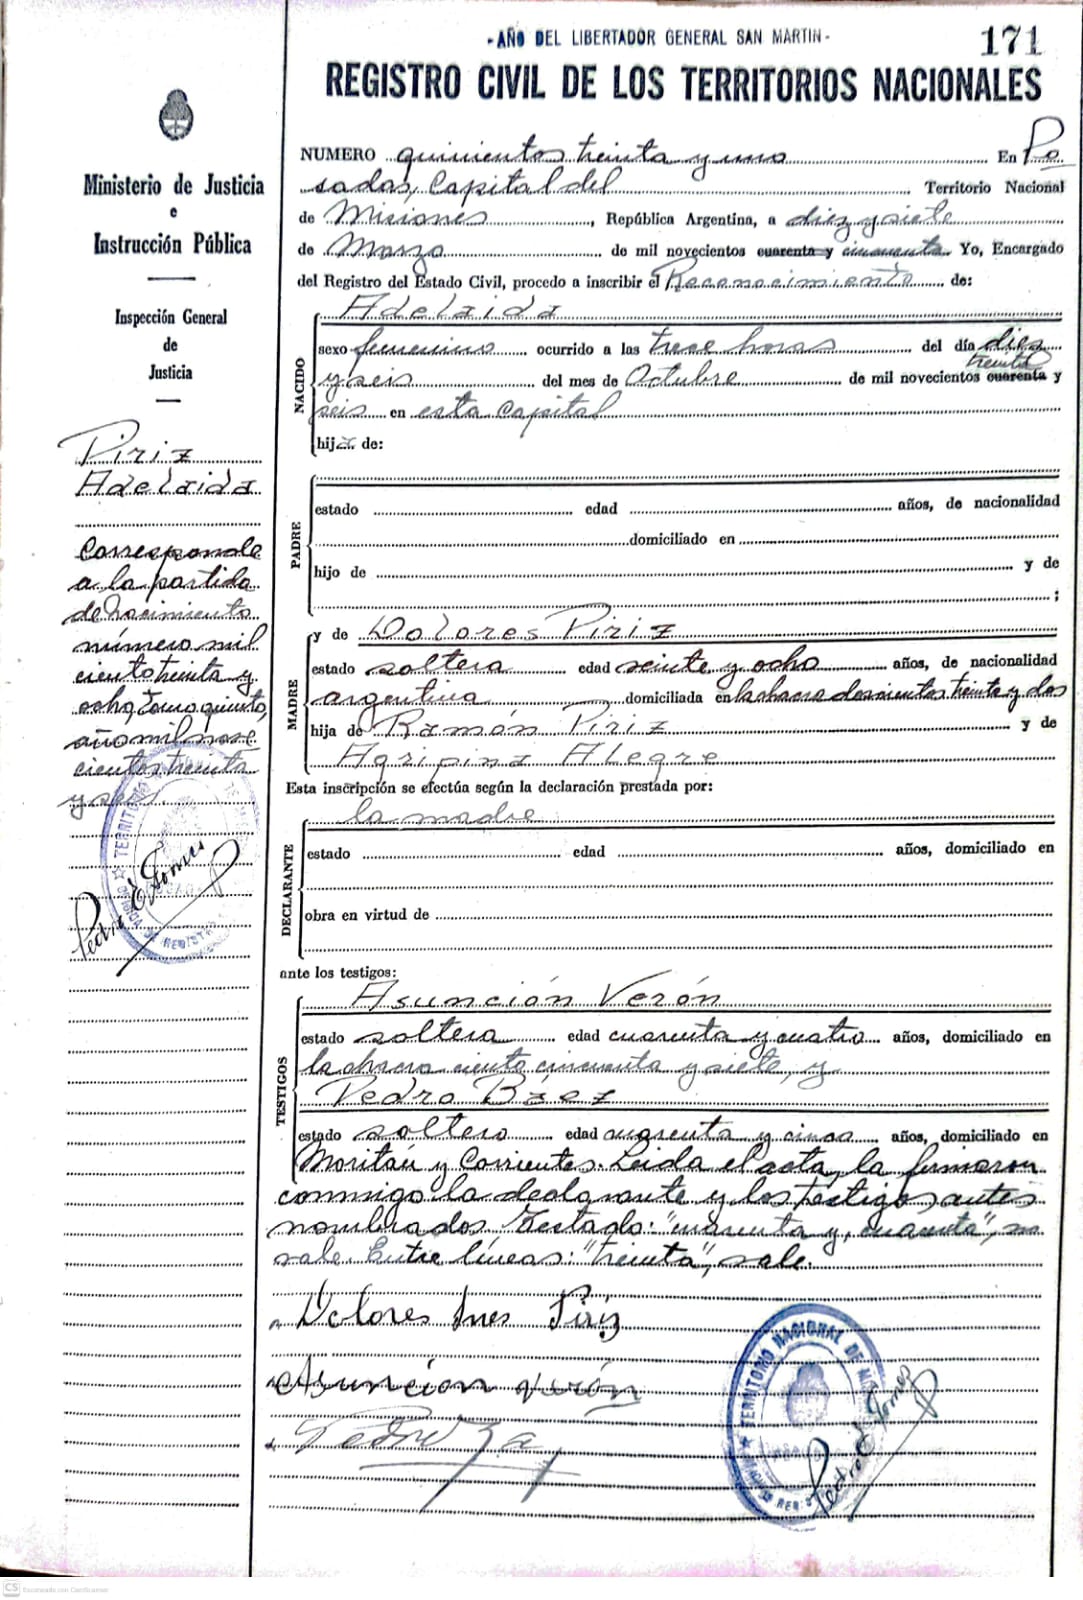 - AÑO DEL LIBERTADOR GENERAL SAN MARTIN -
171
REGISTRO CIVIL DE LOS TERRITORIOS NACIONALES
Ministerio de Justicia
e
Instrucción Pública
Inspección General
de
Justicia
Piriz
Adelaida
Corresponde
a la partida
de Nacimiento
número mil
ciento treinta y
ocho, Tomo quinto,
año mil nove
cientos treinta
y seis.
Pedro E Gomez
NUMERO quinientos treinta y uno En Po
sadas, Capital del Territorio Nacional
de Misiones, República Argentina, a diez y siete
de Marzo de mil novecientos cuarenta y cincuenta Yo, Encargado
del Registro del Estado Civil, procedo a inscribir el Reconocimiento de:
NACIDO
Adelaida
sexo femenino ocurrido a las trece horas del día diez
treinta
y seis del mes de Octubre de mil novecientos cuarenta y
seis en esta Capital
hija de:
PADRE
estado edad años, de nacionalidad
domiciliado en
hijo de y de
;
MADRE
y de Dolores Piriz
estado soltera edad veinte y ocho años, de nacionalidad
argentina domiciliada en la chacra doscientos treinta y dos
hija de Ramón Piriz y de
Agripina Alegre
Esta inscripción se efectúa según la declaración prestada por:
DECLARANTE
la madre
estado edad años, domiciliado en
obra en virtud de
ante los testigos:
TESTIGOS
Asunción Verón
estado soltera edad cuarenta y cuatro años, domiciliado en
la chacra ciento cincuenta y siete, y
Pedro Báez
estado soltero edad cuarenta y cinco años, domiciliado en
Moritán y Corrientes. Leida el acta, la firmaron
conmigo la declarante y los testigos antes
nombrados. Testado: "cuarenta y, cuarenta", no
vale. Entre líneas: "treinta", vale.
Dolores Ines Piriz
Asunción Verón
Pedro
TERRITORIO NACIONAL DE
Pedro E Gomez
CS Escaneado con CamScanner